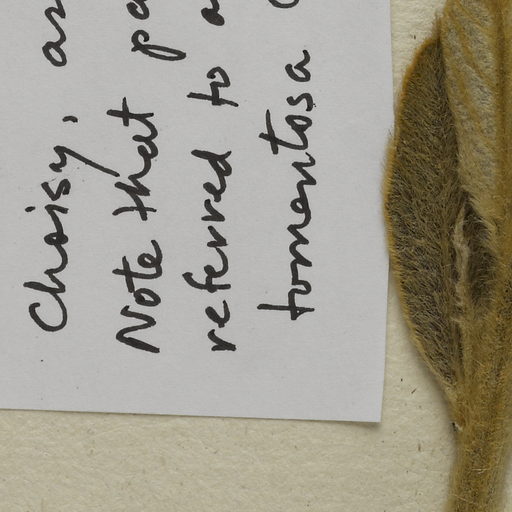 Choisy, as
Note that pa
referred to a
tomentosa